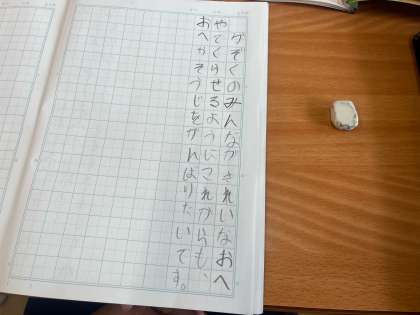 かぞくのみんながきれいなおへ
やでくらせるようにこれからも、
おへやそうじをがんばりたいです。